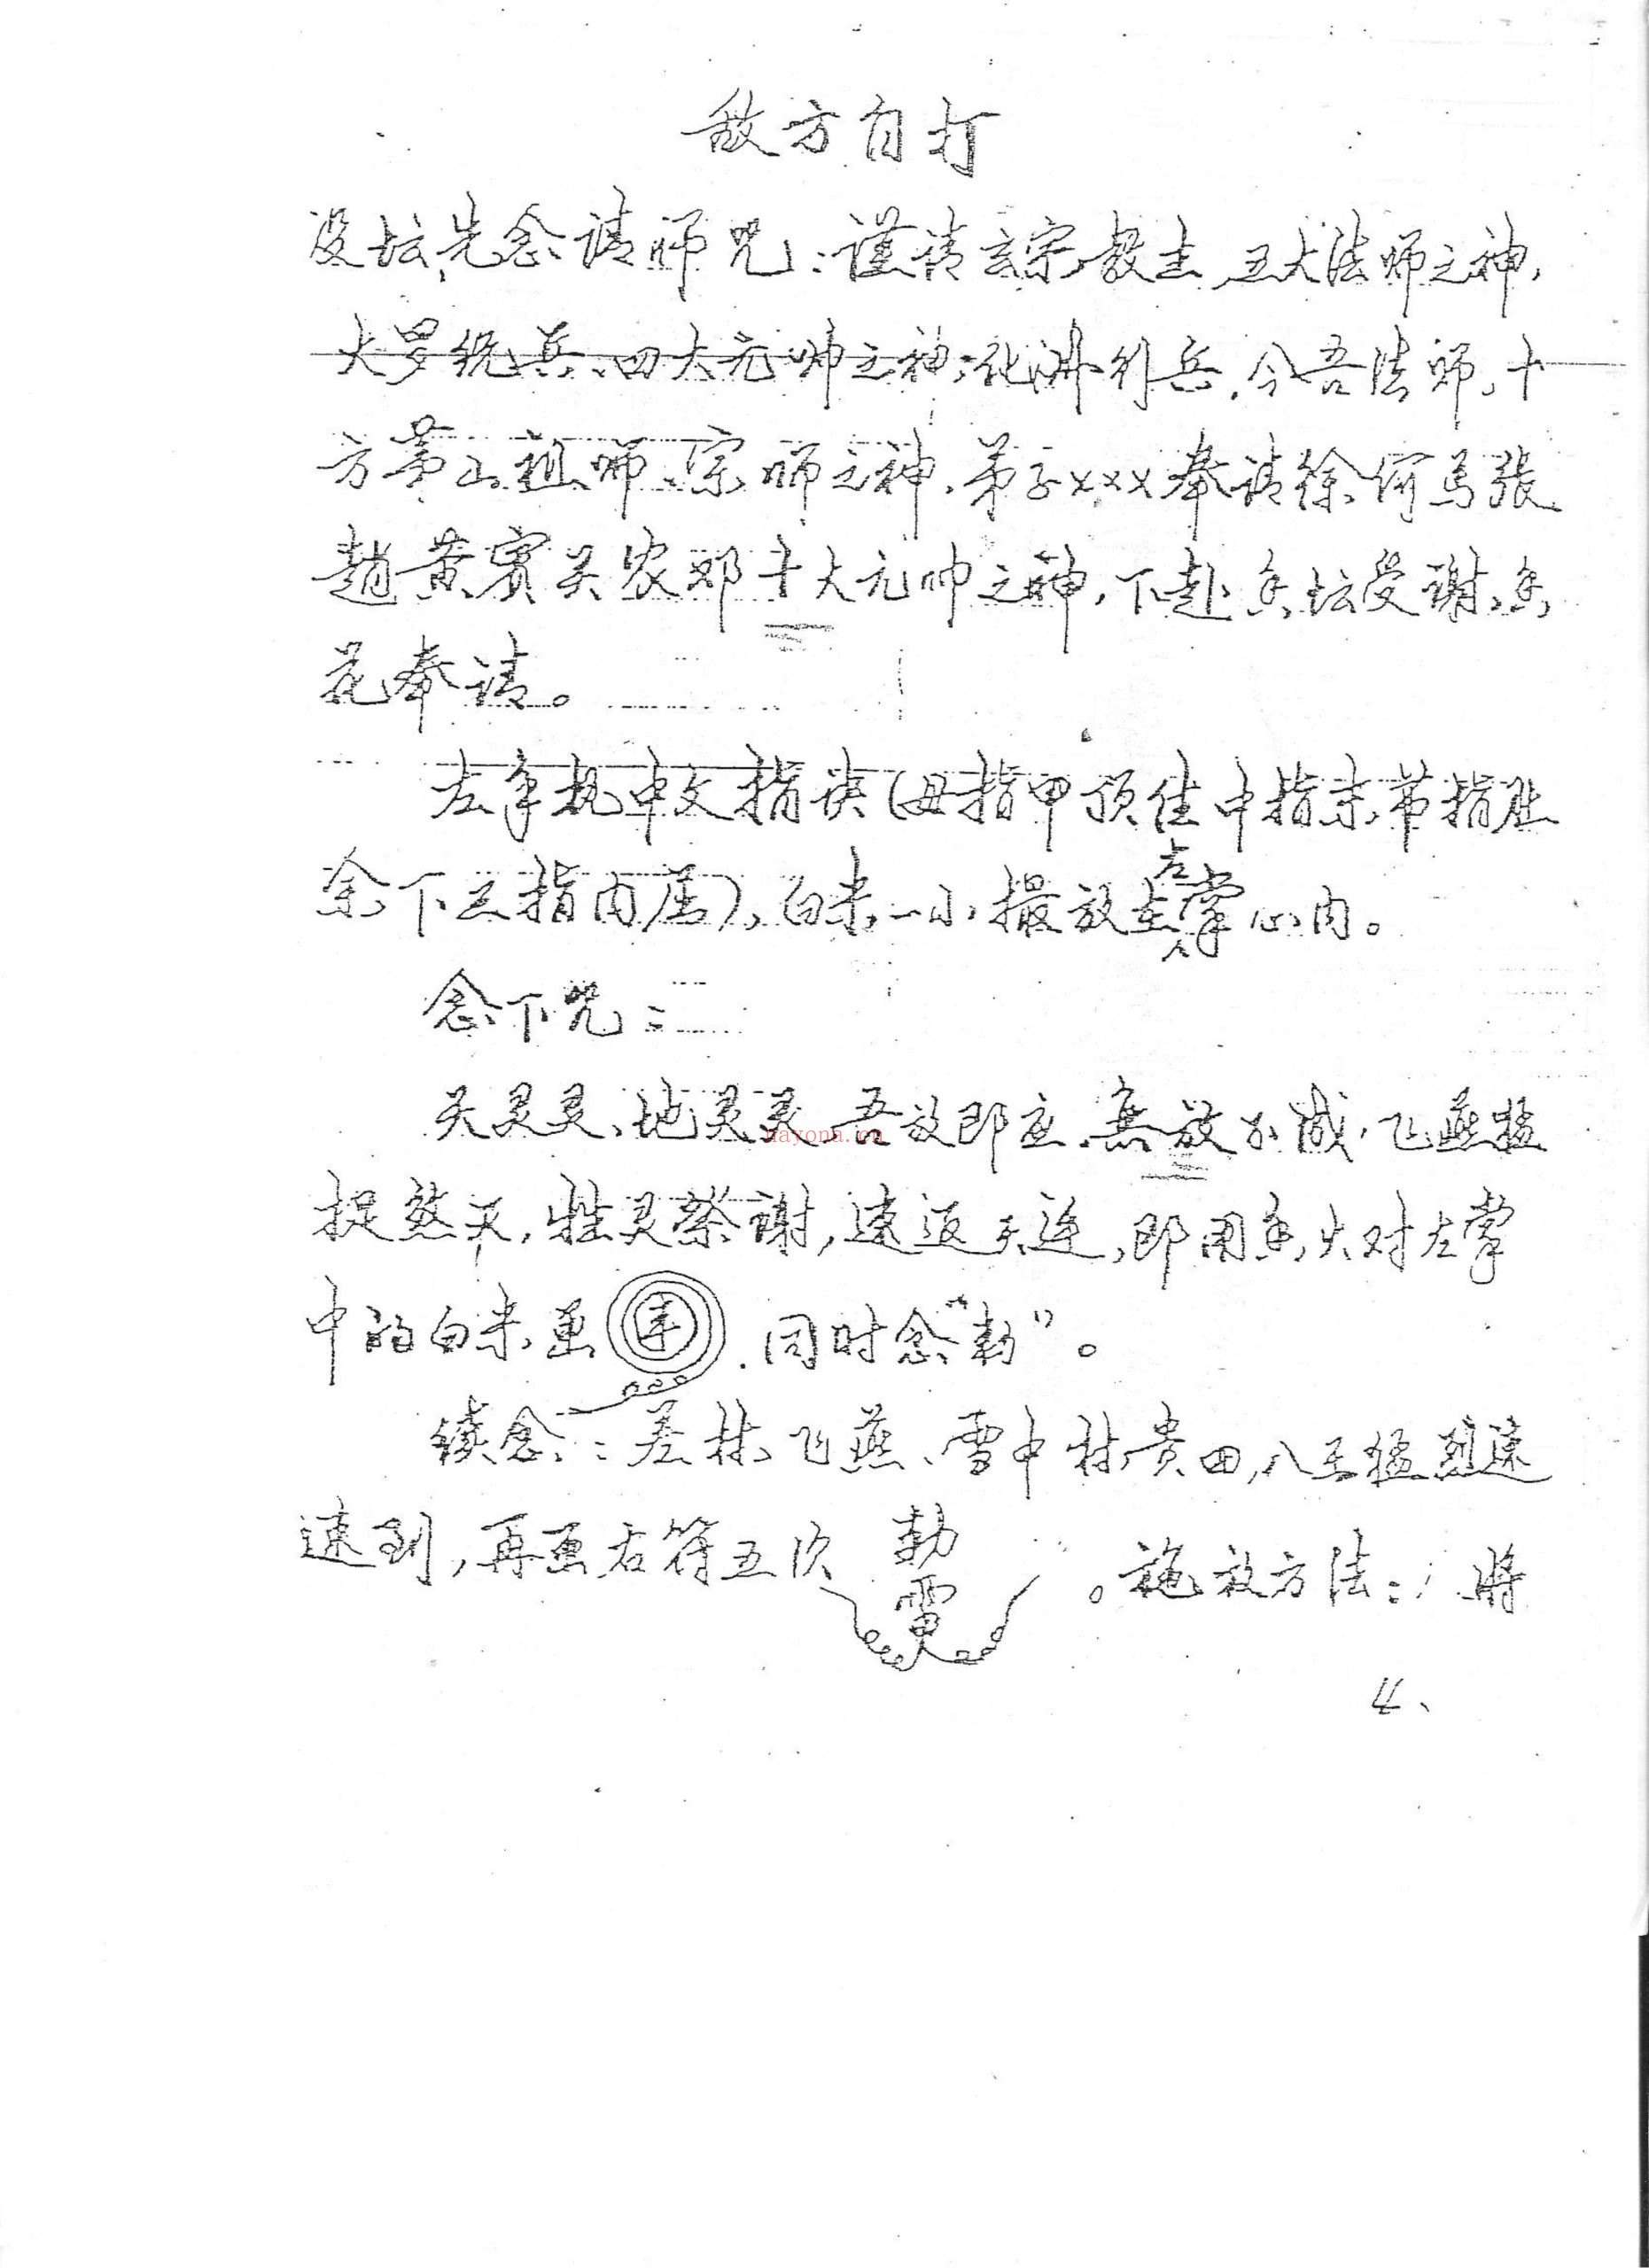 敌方自打
设坛先念请师咒：谨请玄宗教主、五大法师之神，
大罗统兵、四大元帅之神；化洲行兵，今吾法师、十
方茅山祖师、宗师之神，弟子×××奉请徐何马张
赵黄宾关农邓十大元帅之神，下赴香坛受谢，香
花奉请。
左手执中文指诀（母指甲顶住中指末节指肚
余下三指内屈），白米一小撮放在左掌心内。
念下咒：
天灵灵、地灵灵 吾放即应，无放不诚，飞燕猛
捉煞天，牲灵祭谢，速返天连，即用香火对左掌
中的白米画 ，同时念“勅”。
续念：差林飞燕、雪中村贵田，八王猛烈速
速到，再画右符五次 勅 。施放方法：将
4、
nayona.cn